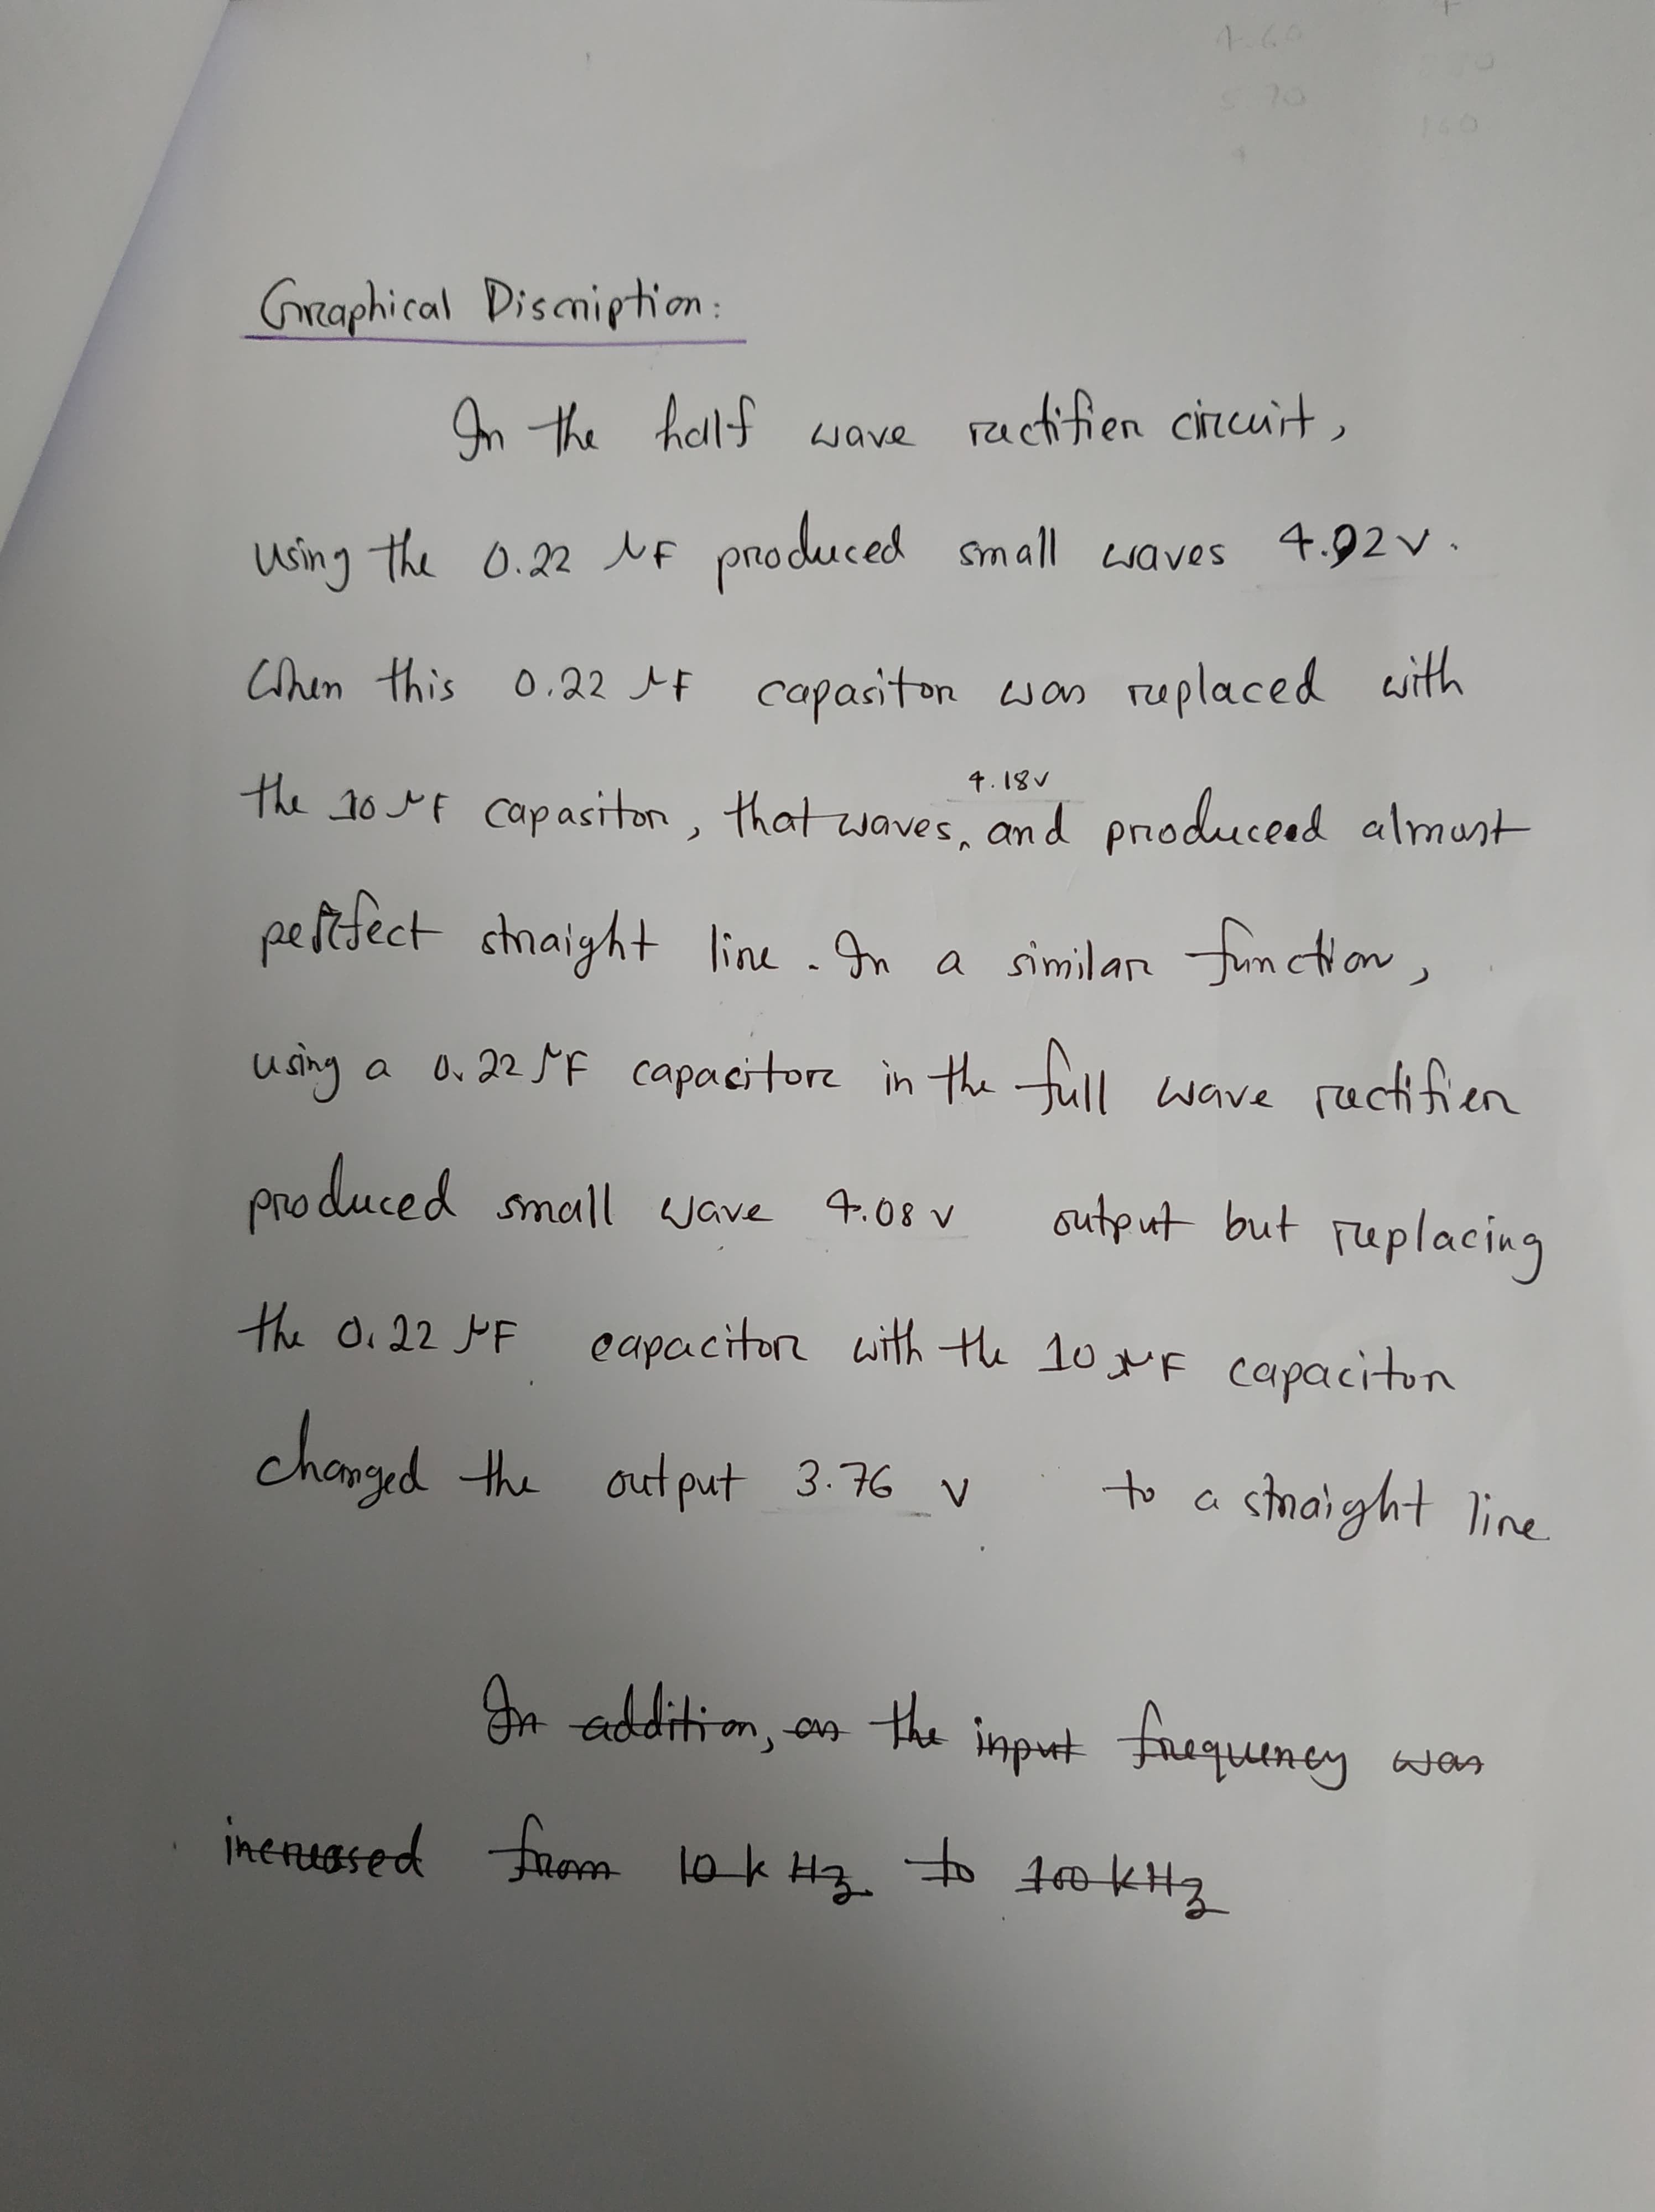 Graphical Discription:
In the half wave rectifier circuit,
using the 0.22 μF produced small waves 4.92 v.
When this 0.22 μF capasitor was replaced with
4.18v
the 10 μF capasitor, that waves, and produceed almost
perfect straight line. In a similar function,
using a 0.22 μF capacitor in the full wave rectifier
produced small wave 4.08 v output but replacing
the 0.22 μF capacitor with the 10 μF capacitor
changed the output 3.76 v to a straight line
In addition, as the input frequency was
increased from 10 k Hz to 100 kHz